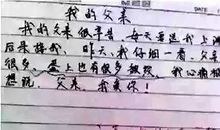 我的父亲
我的父亲很辛苦，每天要送我上
后来接我，昨天，我仔细一看，父亲
很多，头上也有很多
想说：父亲，我爱你！